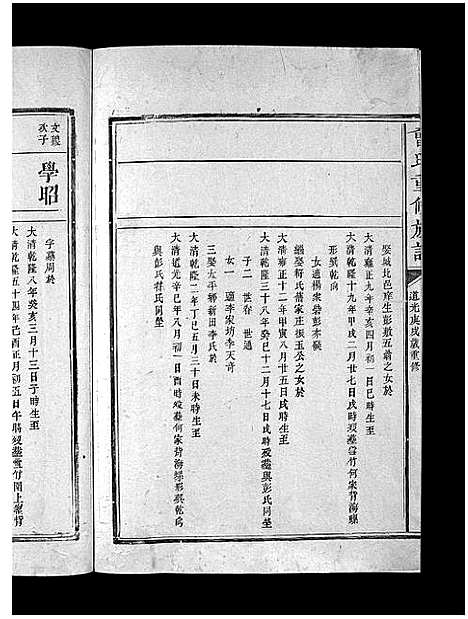 曾氏重修族譜
道光庚戌歲重修
娶城北邑庠生彭敷五翁之女於
大清雍正九年辛亥四月初一日巳時生至
大清乾隆十九年甲戌二月廿七日戌時歿葬雪竹何家背海螺
形巽乾向
女適楊
繼娶符氏箬家庄振玉公之女於
大清雍正十二年甲寅八月廿五日戌時生至
大清乾隆三十八年癸巳十二月十七日戌時歿葬與彭氏同塋
子二 世春 世通
女一 適李家坊李天奇
三娶太平鄉新田李氏於
大清乾隆二年丁巳五月三十日未時生至
大清道光辛巳年八月初一日酉時歿葬何家背海螺形巽乾向
與彭氏符氏同塋
文
次子
學昭
字墓周於
大清乾隆八年癸亥三月十三日子時生至
大清乾隆五十四年己酉正月初五日午時歿葬雪竹園上窠背